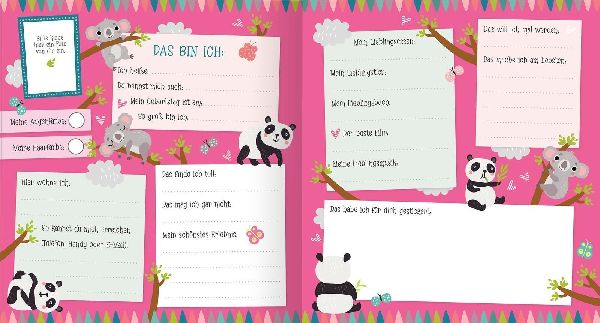 Bitte klebe
hier ein Foto
von dir ein.
DAS BIN ICH:
Ich heiße
Du nennst mich auch:
Mein Geburtstag ist am:
So groß bin ich:
Meine Augenfarbe:
Meine Haarfarbe:
Hier wohne ich:
So kannst du mich erreichen:
Telefon, Handy oder E-Mail:
Das finde ich toll:
Das mag ich gar nicht:
Mein schönstes Erlebnis:
Mein Lieblingsessen:
Mein Lieblingstier:
Mein Lieblingssong:
Der beste Film:
Meine Lieblingsapp:
Das will ich mal werden:
Das mache ich am liebsten:
Das habe ich für dich gestaltet: